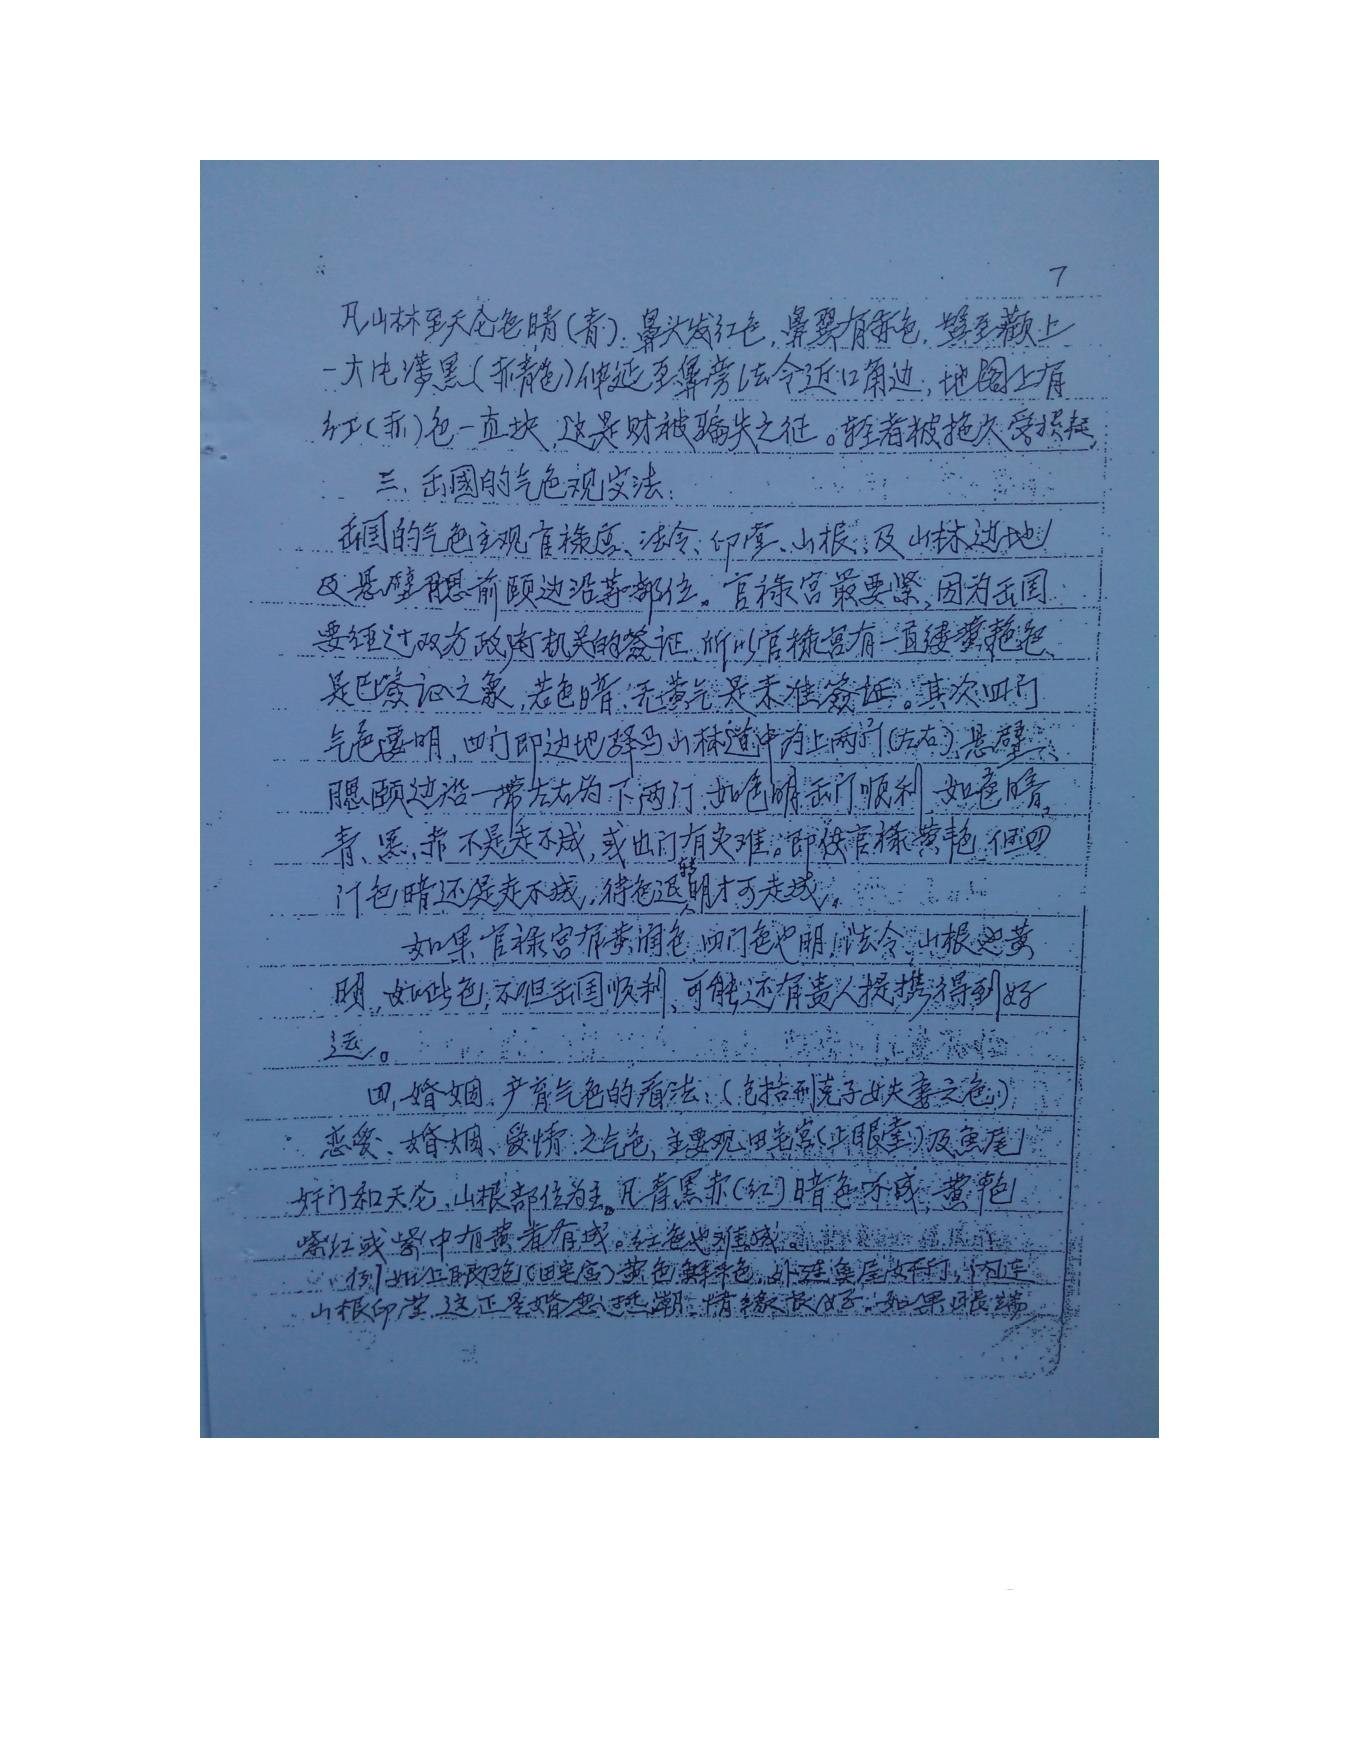 7
凡山林至天仑色暗(青).鼻头发红色,鼻翼有赤色,至颧上
一大片漾黑(赤青色)伸延至鼻旁法令近口角边,地阁上有
红(赤)色一直块,这是财被骗失之征。轻者被拖欠受损耗,
三、出國的气色观察法:
出国的气色主观官禄宫、法令、印堂、山根、及山林边地
及悬壁腮前颐边沿等部位。官禄宫最要紧,因为出国
要经过双方政府机关的签证,所以官禄宫有一直缕黄艳色,
是巴签证之象,若色暗,无黄气是未准签证。其次四门
气色要明,四门即边地驿马山林道中为上两门(左右),悬壁、
腮颐边沿一带左右为下两门.如色明出门顺利,如色暗。
青、黑、赤不是走不成,或出门有灾难。即使官禄黄艳,但四
门色暗还是走不成,待色退转明才可走成。
如果官禄宫有黄润色,四门色也明,法令,山根也黄
明,如此色,不但出国顺利,可能还有贵人提携得到好
运。
四,婚姻、产育气色的看法:(包括刑克子女夫妻之色)
恋爱、婚姻、爱情.之气色,主要观田宅宫(上眼堂)及鱼尾
奸门和天仑、山根部位为主。凡青黑赤(红)暗色不成,黄艳
紫红或紫中有黄者有成。红色也难成。
例如上眼胞(田宅宫)黄色鲜色,外连鱼尾奸门,内连
山根印堂,这正是婚恋过热潮,情缘很好.如果眼端